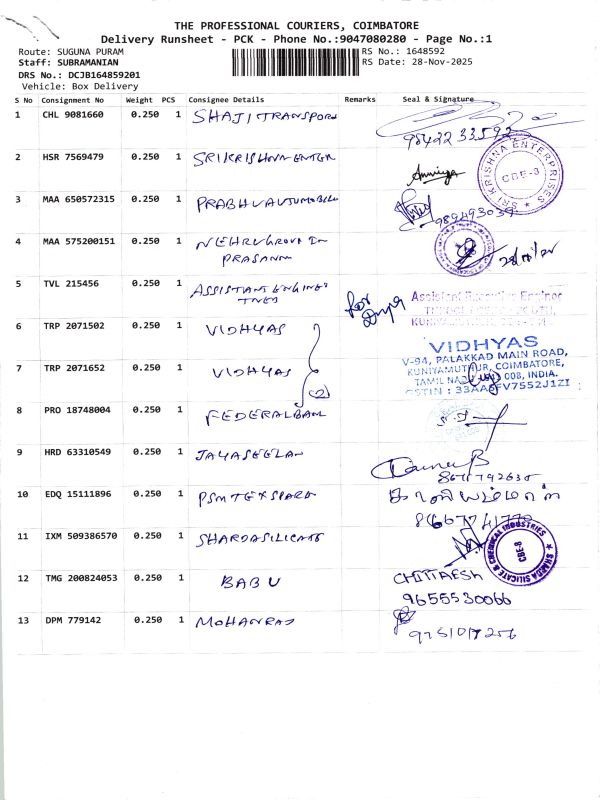 THE PROFESSIONAL COURIERS, COIMBATORE
Delivery Runsheet - PCK - Phone No.:9047080280 - Page No.:1
Route: SUGUNA PURAM
RS No.: 1648592
Staff: SUBRAMANIAN
RS Date: 28-Nov-2025
DRS No.: DCJB164859201
Vehicle: Box Delivery
S No Consignment No Weight PCS Consignee Details Remarks Seal & Signature
1 CHL 9081660 0.250 1 SHAJI TRANSPORT
98422 33592
2 HSR 7569479 0.250 1 SRI KRISHNA ENTER
SRI KRISHNA ENTERPRISES CBE-8
3 MAA 650572315 0.250 1 PRABHU AUTOMOBILE
4 MAA 575200151 0.250 1 NEHRU GROUP IN
PRASANN
5 TVL 215456 0.250 1 ASSISTANT ENGINE
TNEB
for
Assistant Executive Engineer
6 TRP 2071502 0.250 1 VIDHYAS
VIDHYAS
V-94, PALAKKAD MAIN ROAD,
KUNIYAMUTHUR, COIMBATORE,
7 TRP 2071652 0.250 1 VIDHYAS
(2)
8 PRO 18748004 0.250 1 FEDERAL BANK
9 HRD 63310549 0.250 1 JAYASEELAN
10 EDQ 15111896 0.250 1 PSM TEX SPARE
11 IXM 509386570 0.250 1 SHARDA SILICATE
SHARDA SILICATE & CHEMICAL INDUSTRIES CBE-8
12 TMG 200824053 0.250 1 BABU
9655530066
13 DPM 779142 0.250 1 MOHANRAJ